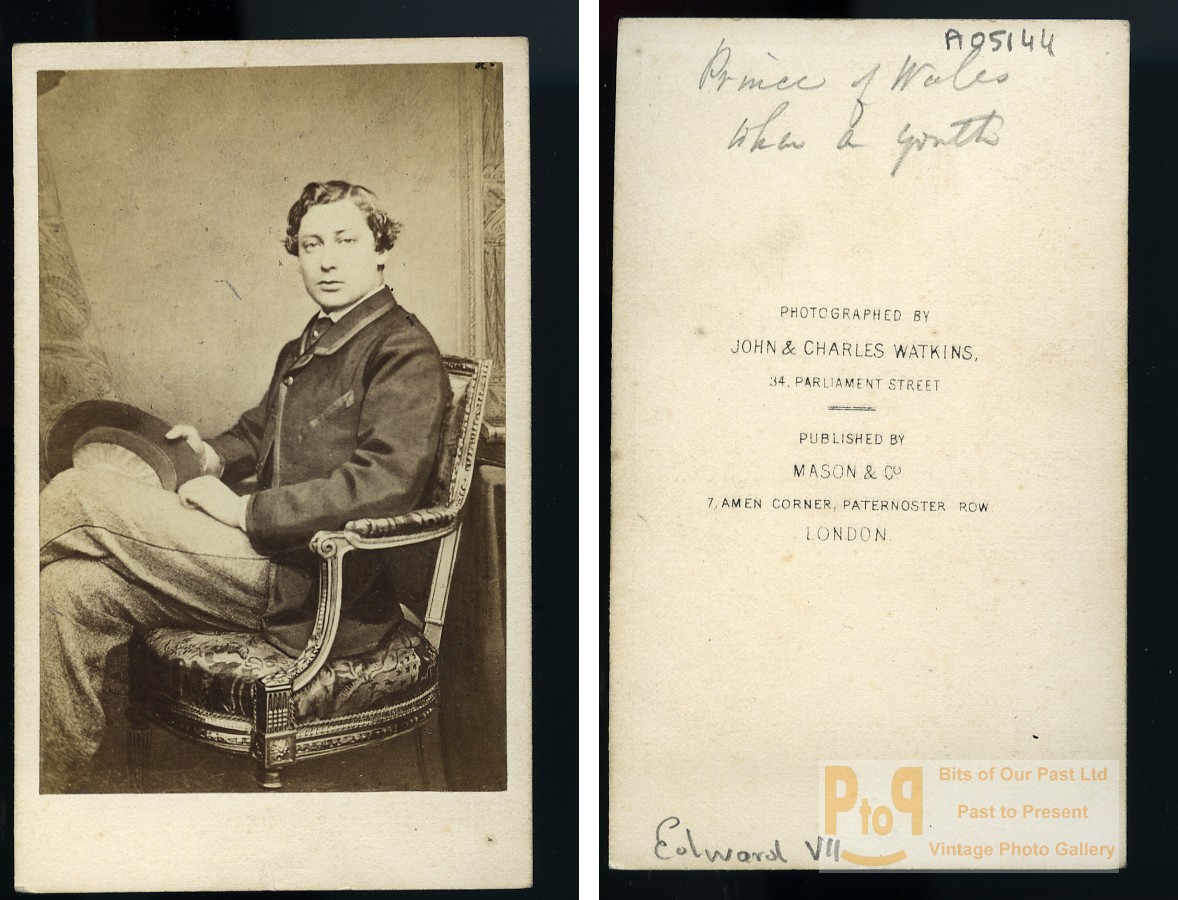 A05144
Prince of Wales
when a youth
PHOTOGRAPHED BY
JOHN & CHARLES WATKINS,
34, PARLIAMENT STREET
PUBLISHED BY
MASON & Co
7, AMEN CORNER, PATERNOSTER ROW
LONDON
Edward VII
PtoP
Bits of Our Past Ltd
Past to Present
Vintage Photo Gallery